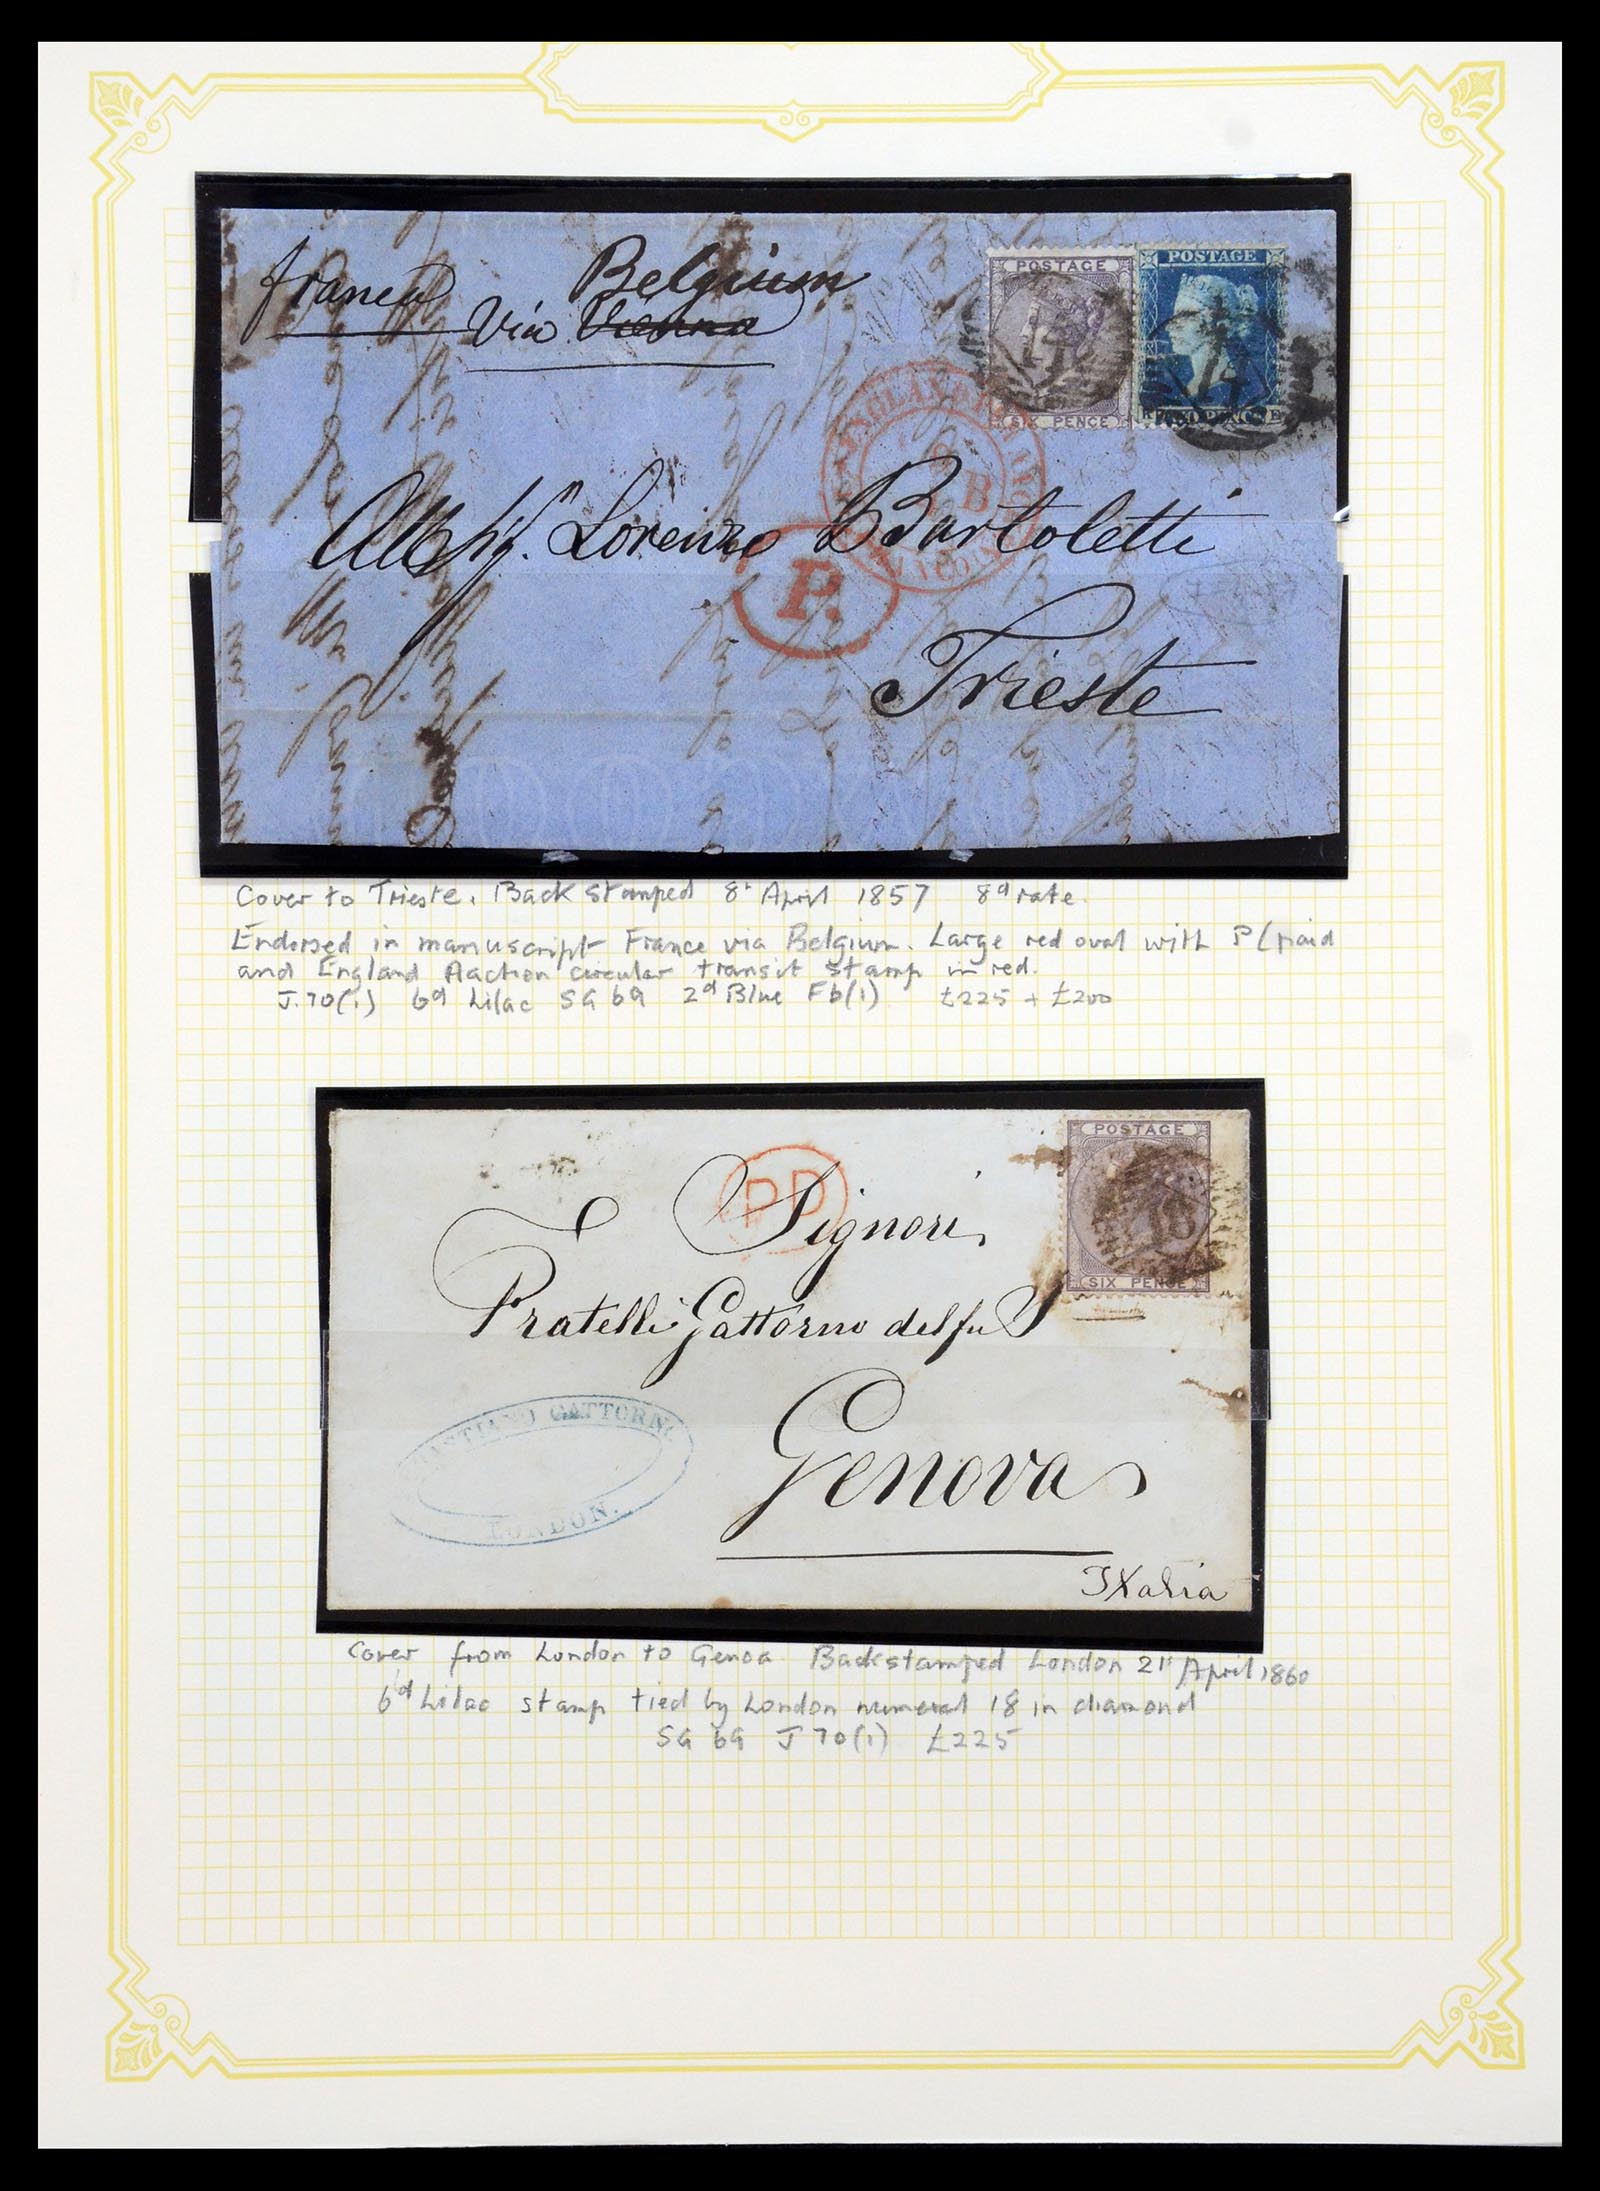 Belgium
franca
Via Vienna
POSTAGE
SIX PENCE
POSTAGE
TWO PENCE
Lorenzo Bartoletti
P.
Trieste
Cover to Trieste. Back stamped 8t April 1857 8d rate.
Endorsed in manuscript France via Belgium. Large red oval with P (paid
and England Aachen circular transit stamp in red.
J.70(1) 6d Lilac SG 69 2d Blue F6(1) £225 + £200
POSTAGE
SIX PENCE
18
PD
Signori
Fratelli Gattorno del fu
GATTORNO
LONDON.
Genova
Italia
Cover from London to Genoa Backstamped London 21st April 1860
6d Lilac stamp tied by London numeral 18 in diamond
SG 69 J 70(1) £225